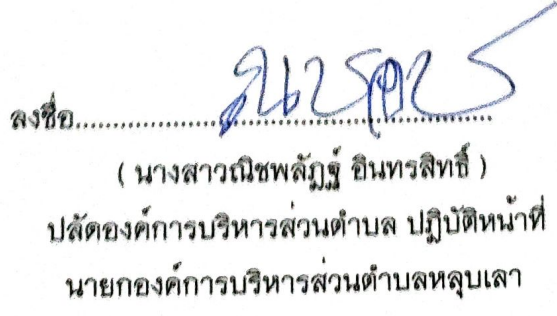 ลงชื่อ..........................................................
( นางสาวณิชพลัฏฐ์ อินทรสิทธิ์ )
ปลัดองค์การบริหารส่วนตำบล ปฏิบัติหน้าที่
นายกองค์การบริหารส่วนตำบลหลุบเลา